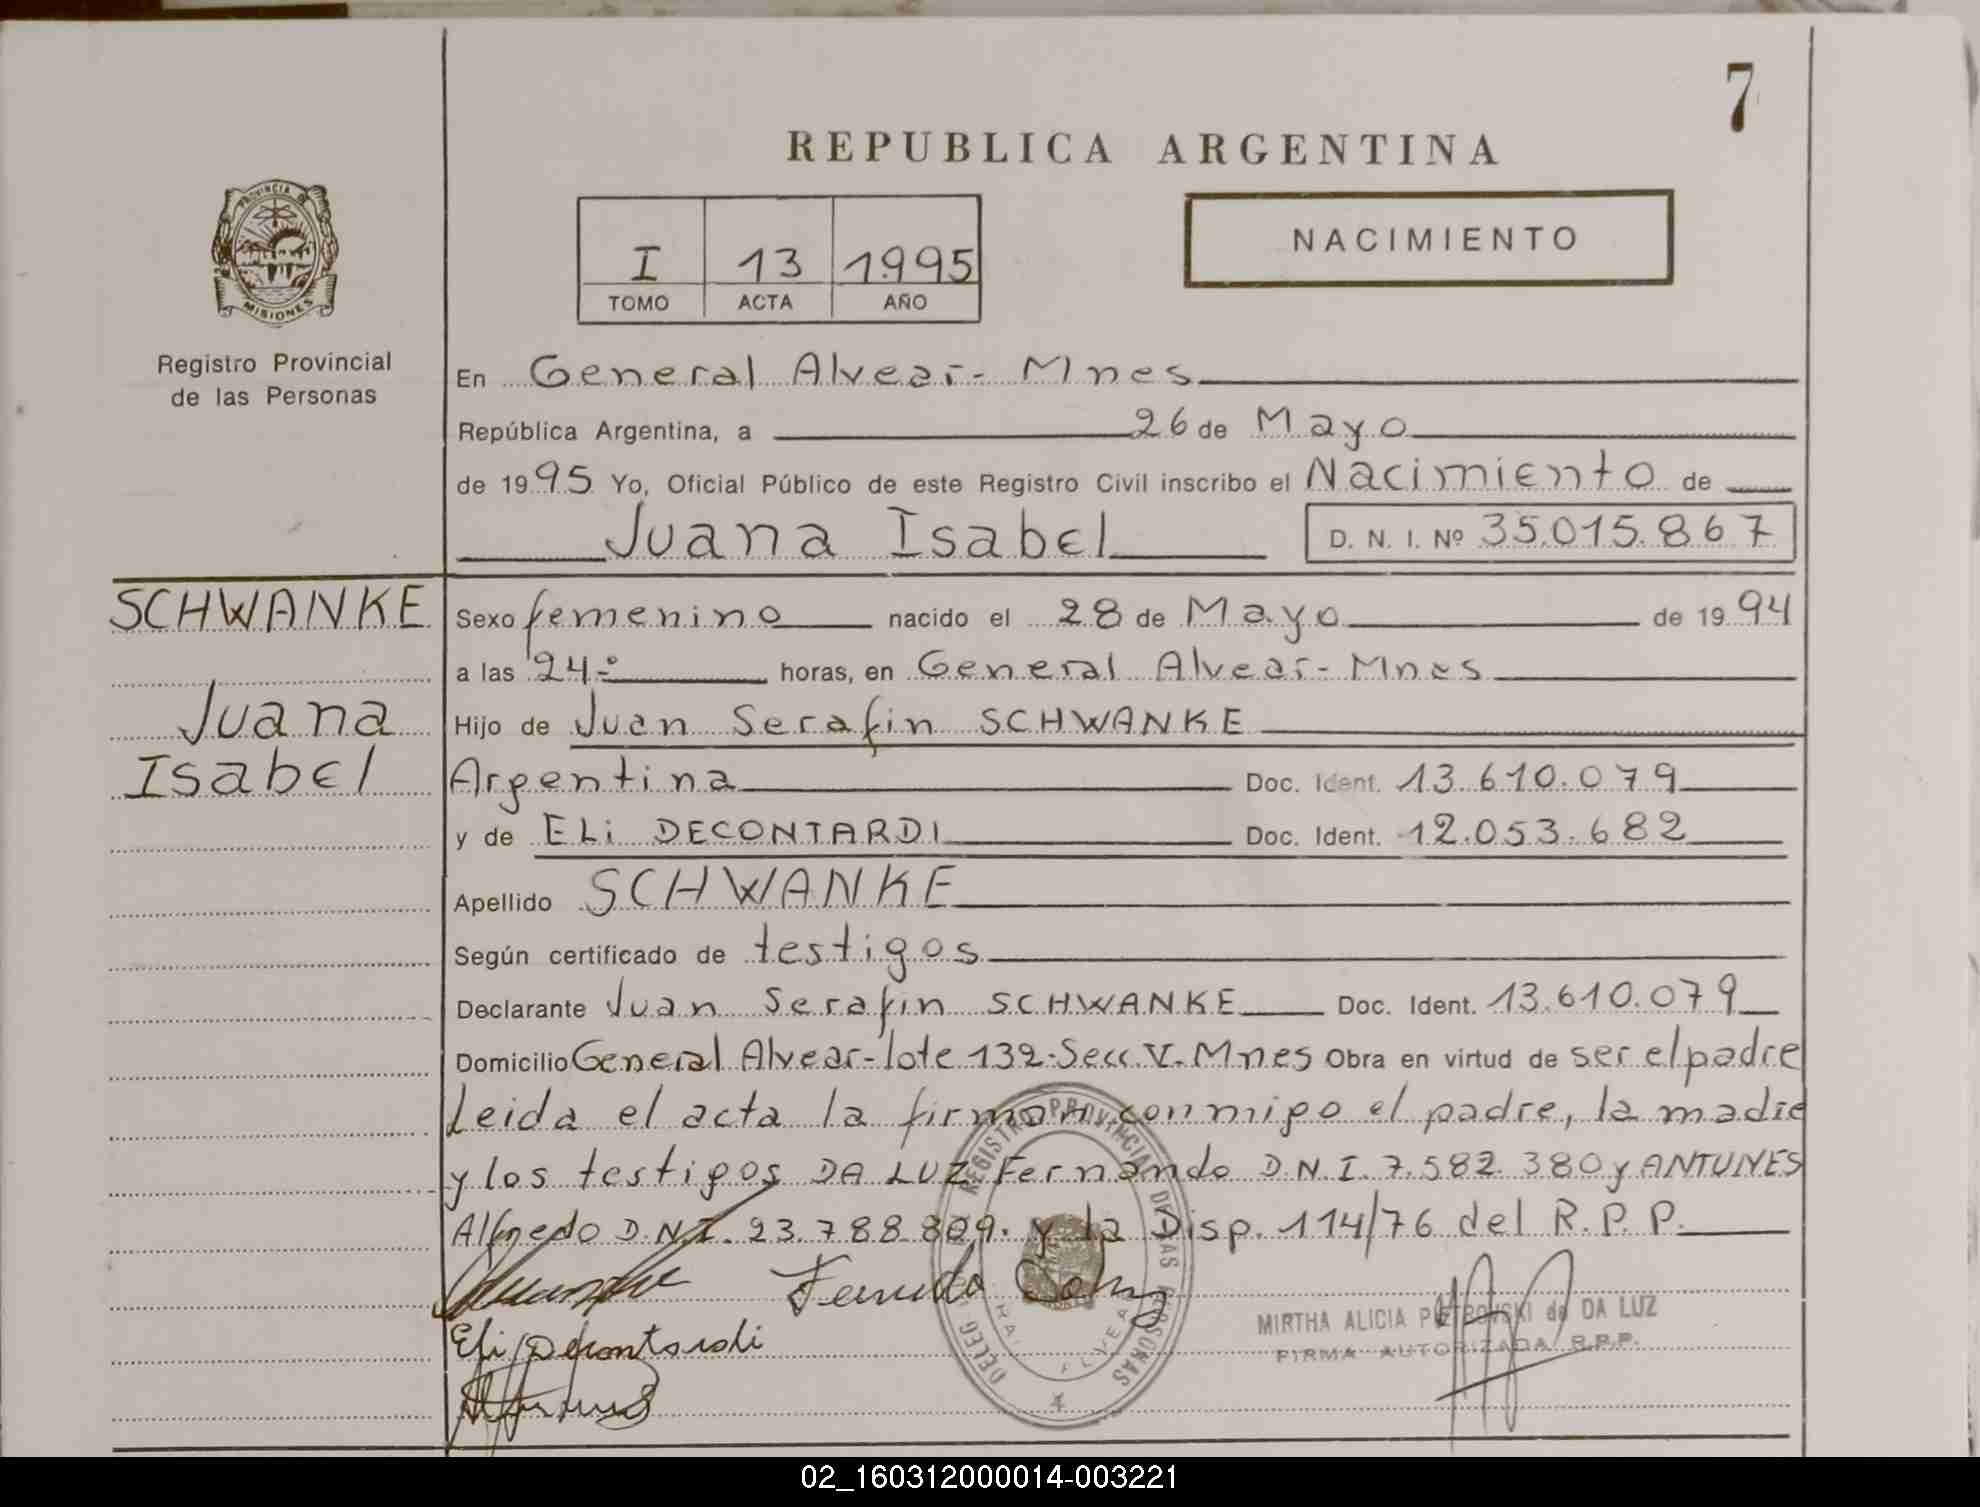 7
REPUBLICA ARGENTINA
PROVINCIA DE
MISIONES
Registro Provincial
de las Personas
I 13 1995
TOMO ACTA AÑO
NACIMIENTO
En General Alvear - Mnes
República Argentina, a 26 de Mayo
de 1995 Yo, Oficial Público de este Registro Civil inscribo el Nacimiento de
Juana Isabel D. N. I. Nº 35.015.867
SCHWANKE
Juana
Isabel
Sexo femenino nacido el 28 de Mayo de 1994
a las 24 horas, en General Alvear - Mnes
Hijo de Juan Serafin SCHWANKE
Argentina Doc. Ident. 13.610.079
y de ELi DECONTARDI Doc. Ident. 12.053.682
Apellido SCHWANKE
Según certificado de testigos
Declarante Juan Serafin SCHWANKE Doc. Ident. 13.610.079
Domicilio General Alvear - lote 132 - Secc. V. Mnes Obra en virtud de ser el padre
Leida el acta la firman conmigo el padre, la madre
y los testigos DA LUZ Fernando D.N.I. 7.582.380 y ANTUNES
Alfredo D.N.I. 23.788.809. y la Disp. 114/76 del R.P.P.
DELEG REGISTRO PROVINCIAL DE LAS PERSONAS
GRAL ALVEAR
Eli Decontardi
MIRTHA ALICIA PIETROVSKI de DA LUZ
FIRMA AUTORIZADA R.P.P.
02_160312000014-003221